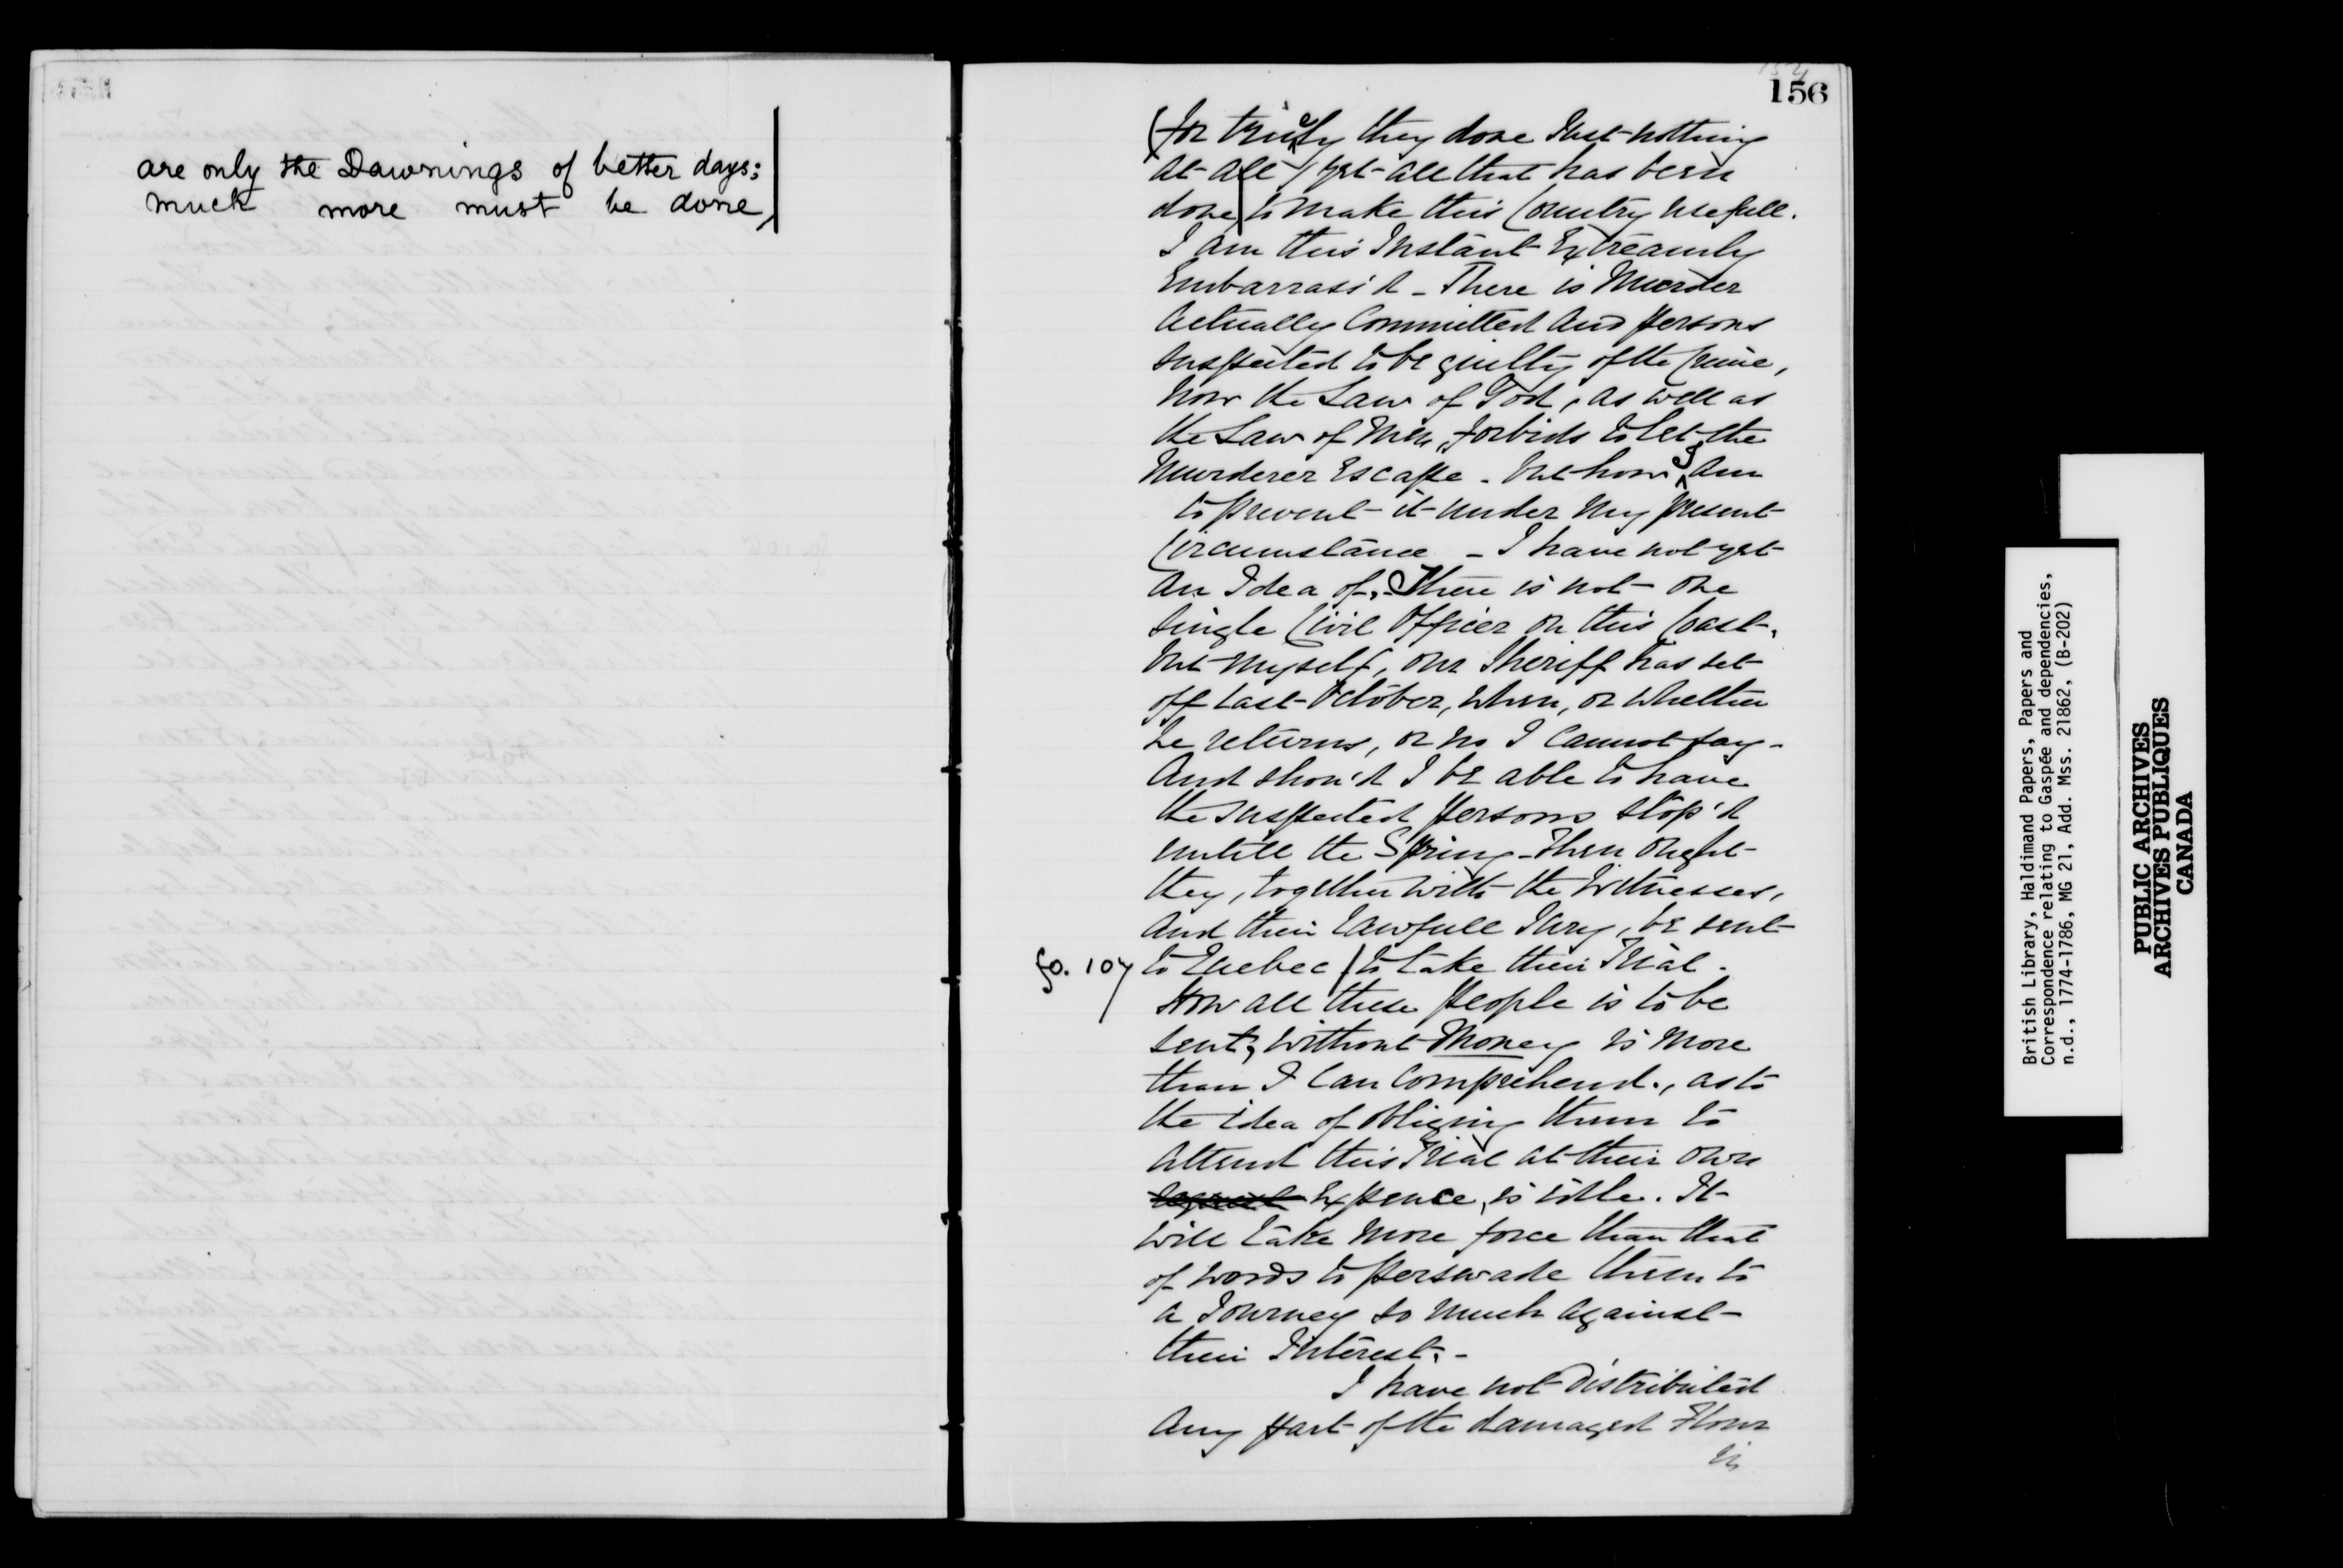 are only the Dawnings of better days;
much more must be done,
156
(for truely they done Just nothing
at all) yet all that has been
done to make this Country usefull.
I am this Instant Extreamly
Embarrass'd - There is Murder
actually Committed and persons
suspected to be guilty of the Crime,
now the Law of God, as well as
the Law of Men, forbids to let the
Murderer Escape. but how I am
to prevent it under my present
Circumstance - I have not yet
an Idea of. There is not one
single Civil Officer on this Coast,
but myself, our Sheriff has set
off last October, when, or whether
he returns, or no I cannot say -
And shou'd I be able to have
the suspected persons stop'd
untill the Spring - then ought
they, together with the Witnesses,
and their lawfull Jury, be sent
fo. 107 to Quebec / to take their Trial.
How all these people is to be
sent, without Money is more
than I can comprehend., as to
the idea of obliging them to
attend this Trial at their own
Expence, is idle. It
will take more force than that
of words to perswade them to
a Journey so much against
their Interest. -
I have not distributed
any part of the damaged Flour
in
British Library, Haldimand Papers, Papers and
Correspondence relating to Gaspée and dependencies,
n.d., 1774-1786, MG 21, Add. Mss. 21862, (B-202)
PUBLIC ARCHIVES
ARCHIVES PUBLIQUES
CANADA